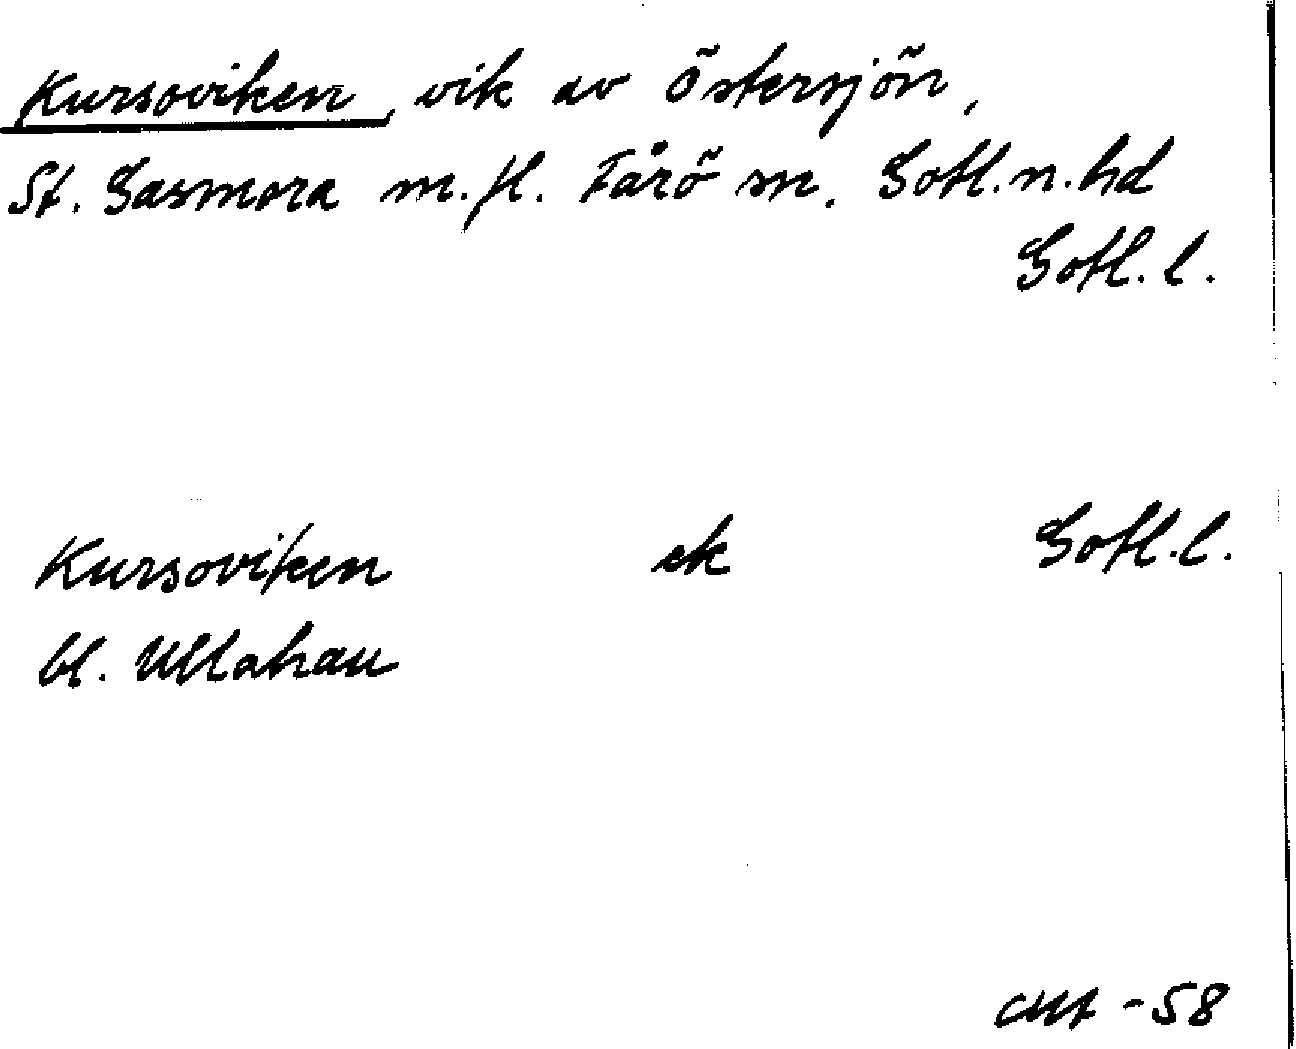 Kursoviken, vik av Östersjön,
St. Gasmora m.fl. Fårö sn. Gotl.n.hd
Gotl.l.
Kursoviken ek Gotl.l.
bl. Ullahau
-58